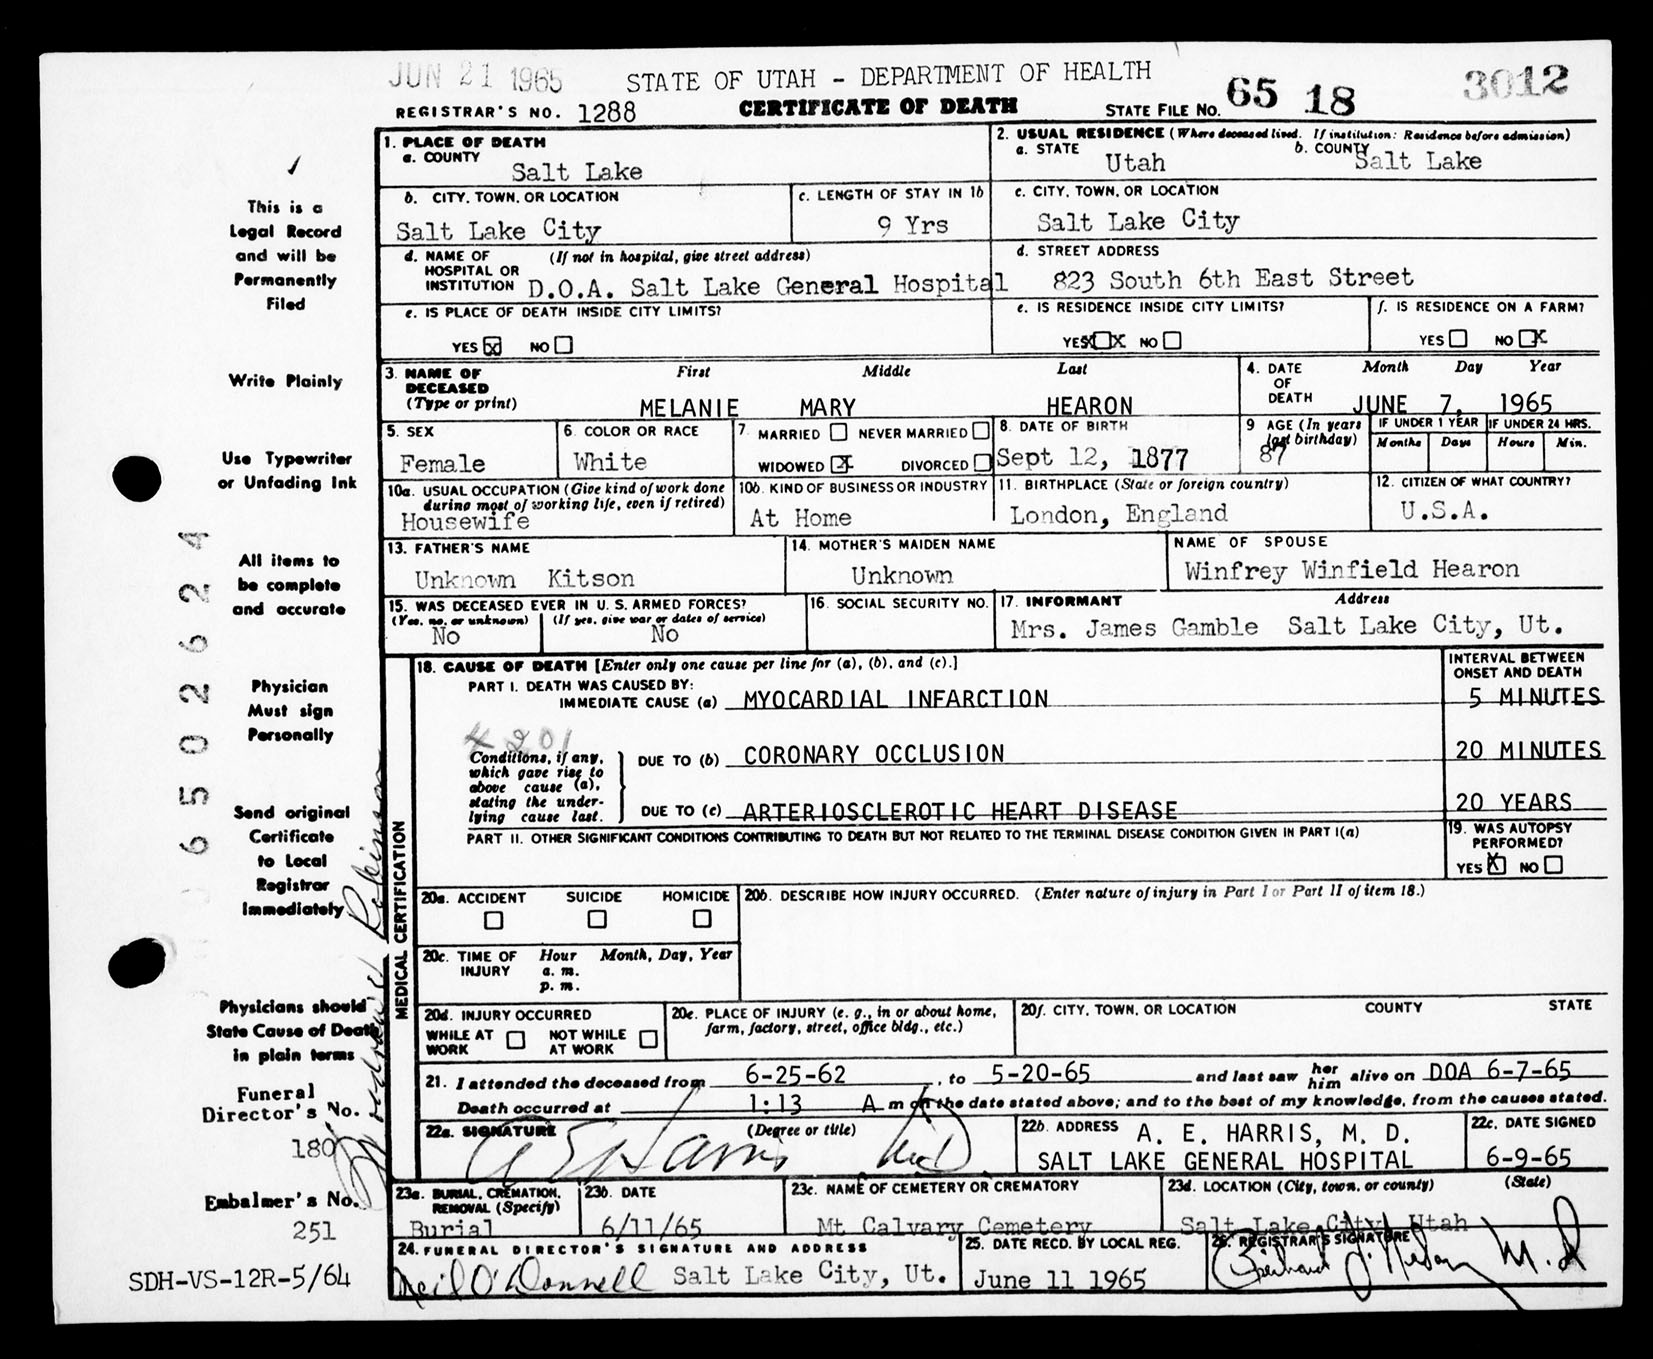 JUN 21 1965 STATE OF UTAH - DEPARTMENT OF HEALTH 3012
REGISTRAR'S NO. 1288 CERTIFICATE OF DEATH STATE FILE NO. 65 18
This is a
Legal Record
and will be
Permanently
Filed
Write Plainly
Use Typewriter
or Unfading Ink
All items to
be complete
and accurate
Physician
Must sign
Personally
Send original
Certificate
to Local
Registrar
Immediately
Physicians should
State Cause of Death
in plain terms
Funeral
Director's No.
180
Embalmer's No.
251
SDH-VS-12R-5/64
6502624
Woodrow Robinson
1. PLACE OF DEATH
a. COUNTY
Salt Lake
2. USUAL RESIDENCE (Where deceased lived. If institution: Residence before admission)
a. STATE b. COUNTY
Utah Salt Lake
b. CITY, TOWN, OR LOCATION
Salt Lake City
c. LENGTH OF STAY IN 1b
9 Yrs
c. CITY, TOWN, OR LOCATION
Salt Lake City
d. NAME OF (If not in hospital, give street address)
HOSPITAL OR
INSTITUTION D.O.A. Salt Lake General Hospital
d. STREET ADDRESS
823 South 6th East Street
e. IS PLACE OF DEATH INSIDE CITY LIMITS?
YES X NO
e. IS RESIDENCE INSIDE CITY LIMITS?
YES X X NO
f. IS RESIDENCE ON A FARM?
YES NO X
3. NAME OF First Middle Last
DECEASED
(Type or print) MELANIE MARY HEARON
4. DATE Month Day Year
OF
DEATH JUNE 7, 1965
5. SEX
Female
6. COLOR OR RACE
White
7. MARRIED NEVER MARRIED
WIDOWED X DIVORCED
8. DATE OF BIRTH
Sept 12, 1877
9 AGE (In years
last birthday)
87
IF UNDER 1 YEAR IF UNDER 24 HRS.
Months Days Hours Min.
10a. USUAL OCCUPATION (Give kind of work done
during most of working life, even if retired)
Housewife
10b. KIND OF BUSINESS OR INDUSTRY
At Home
11. BIRTHPLACE (State or foreign country)
London, England
12. CITIZEN OF WHAT COUNTRY?
U.S.A.
13. FATHER'S NAME
Unknown Kitson
14. MOTHER'S MAIDEN NAME
Unknown
NAME OF SPOUSE
Winfrey Winfield Hearon
15. WAS DECEASED EVER IN U. S. ARMED FORCES?
(Yes, no, or unknown) (If yes, give war or dates of service)
No No
16. SOCIAL SECURITY NO.
17. INFORMANT Address
Mrs. James Gamble Salt Lake City, Ut.
MEDICAL CERTIFICATION
18. CAUSE OF DEATH [Enter only one cause per line for (a), (b), and (c).]
INTERVAL BETWEEN
ONSET AND DEATH
PART I. DEATH WAS CAUSED BY:
IMMEDIATE CAUSE (a) MYOCARDIAL INFARCTION 5 MINUTES
4201
Conditions, if any,
which gave rise to
above cause (a),
stating the under-
lying cause last.
DUE TO (b) CORONARY OCCLUSION 20 MINUTES
DUE TO (c) ARTERIOSCLEROTIC HEART DISEASE 20 YEARS
PART II. OTHER SIGNIFICANT CONDITIONS CONTRIBUTING TO DEATH BUT NOT RELATED TO THE TERMINAL DISEASE CONDITION GIVEN IN PART I(a)
19. WAS AUTOPSY
PERFORMED?
YES X NO
20a. ACCIDENT SUICIDE HOMICIDE
20b. DESCRIBE HOW INJURY OCCURRED. (Enter nature of injury in Part I or Part II of item 18.)
20c. TIME OF Hour Month, Day, Year
INJURY a. m.
p. m.
20d. INJURY OCCURRED
WHILE AT NOT WHILE
WORK AT WORK
20e. PLACE OF INJURY (e. g., in or about home,
farm, factory, street, office bldg., etc.)
20f. CITY, TOWN, OR LOCATION COUNTY STATE
21. I attended the deceased from 6-25-62, to 5-20-65 and last saw her him alive on DOA 6-7-65
Death occurred at 1:13 A m on the date stated above; and to the best of my knowledge, from the causes stated.
22a. SIGNATURE (Degree or title)
A E Harris M.D.
22b. ADDRESS A. E. HARRIS, M. D.
SALT LAKE GENERAL HOSPITAL
22c. DATE SIGNED
6-9-65
23a. BURIAL, CREMATION,
REMOVAL (Specify)
Burial
23b. DATE
6/11/65
23c. NAME OF CEMETERY OR CREMATORY
Mt Calvary Cemetery
23d. LOCATION (City, town, or county) (State)
Salt Lake City, Utah
24. FUNERAL DIRECTOR'S SIGNATURE AND ADDRESS
Neil O'Donnell Salt Lake City, Ut.
25. DATE RECD. BY LOCAL REG.
June 11 1965
26. REGISTRAR'S SIGNATURE
M.D